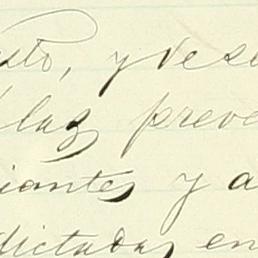 sto, y dese
las preve
iantes y a
dictadas en